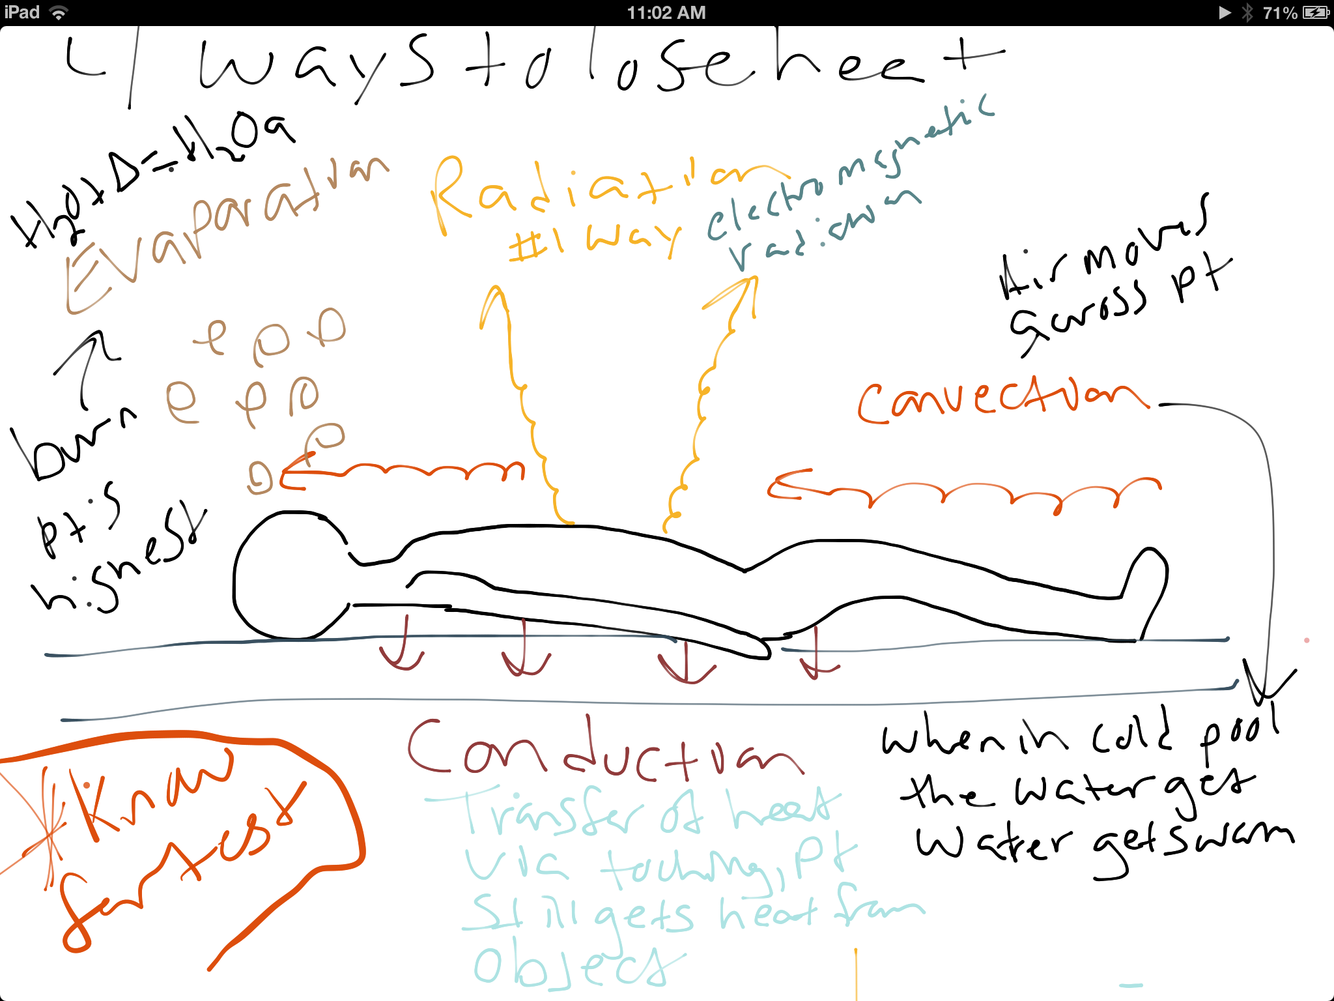 iPad
11:02 AM
71%
4 ways to lose heat
H2O+Δ=H2Oq
Evaporation
Radiation
#1 way
electromagnetic
radiation
Air moves
across pt
Convection
burn
pt's
highest
Conduction
Transfer of heat
via touching, pt
Still gets heat from
Object
when in cold pool
the water get
water gets warm
*Know
for test